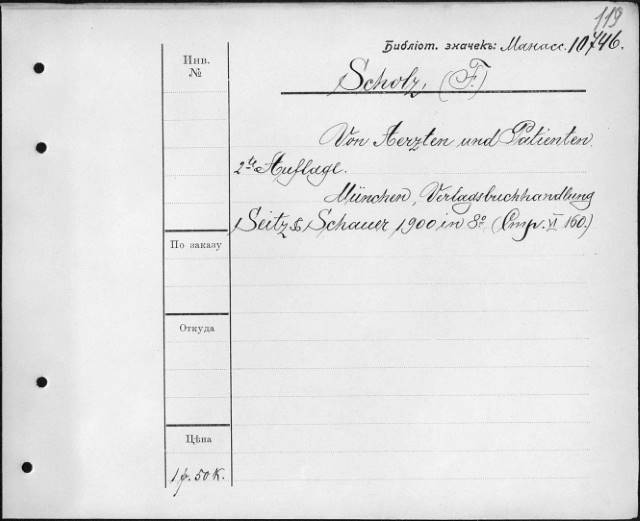 119
Библіот. значекъ: Манасс. 10746.
Инв.
№
Scholz, (F.)
Von Aerzten und Patienten.
2te Auflage.
München, Verlagsbuchhandlung
Seitz & Schauer 1900 in 8º (Стр. VI 160.)
По заказу
Откуда
Цѣна
1 р. 50 к.